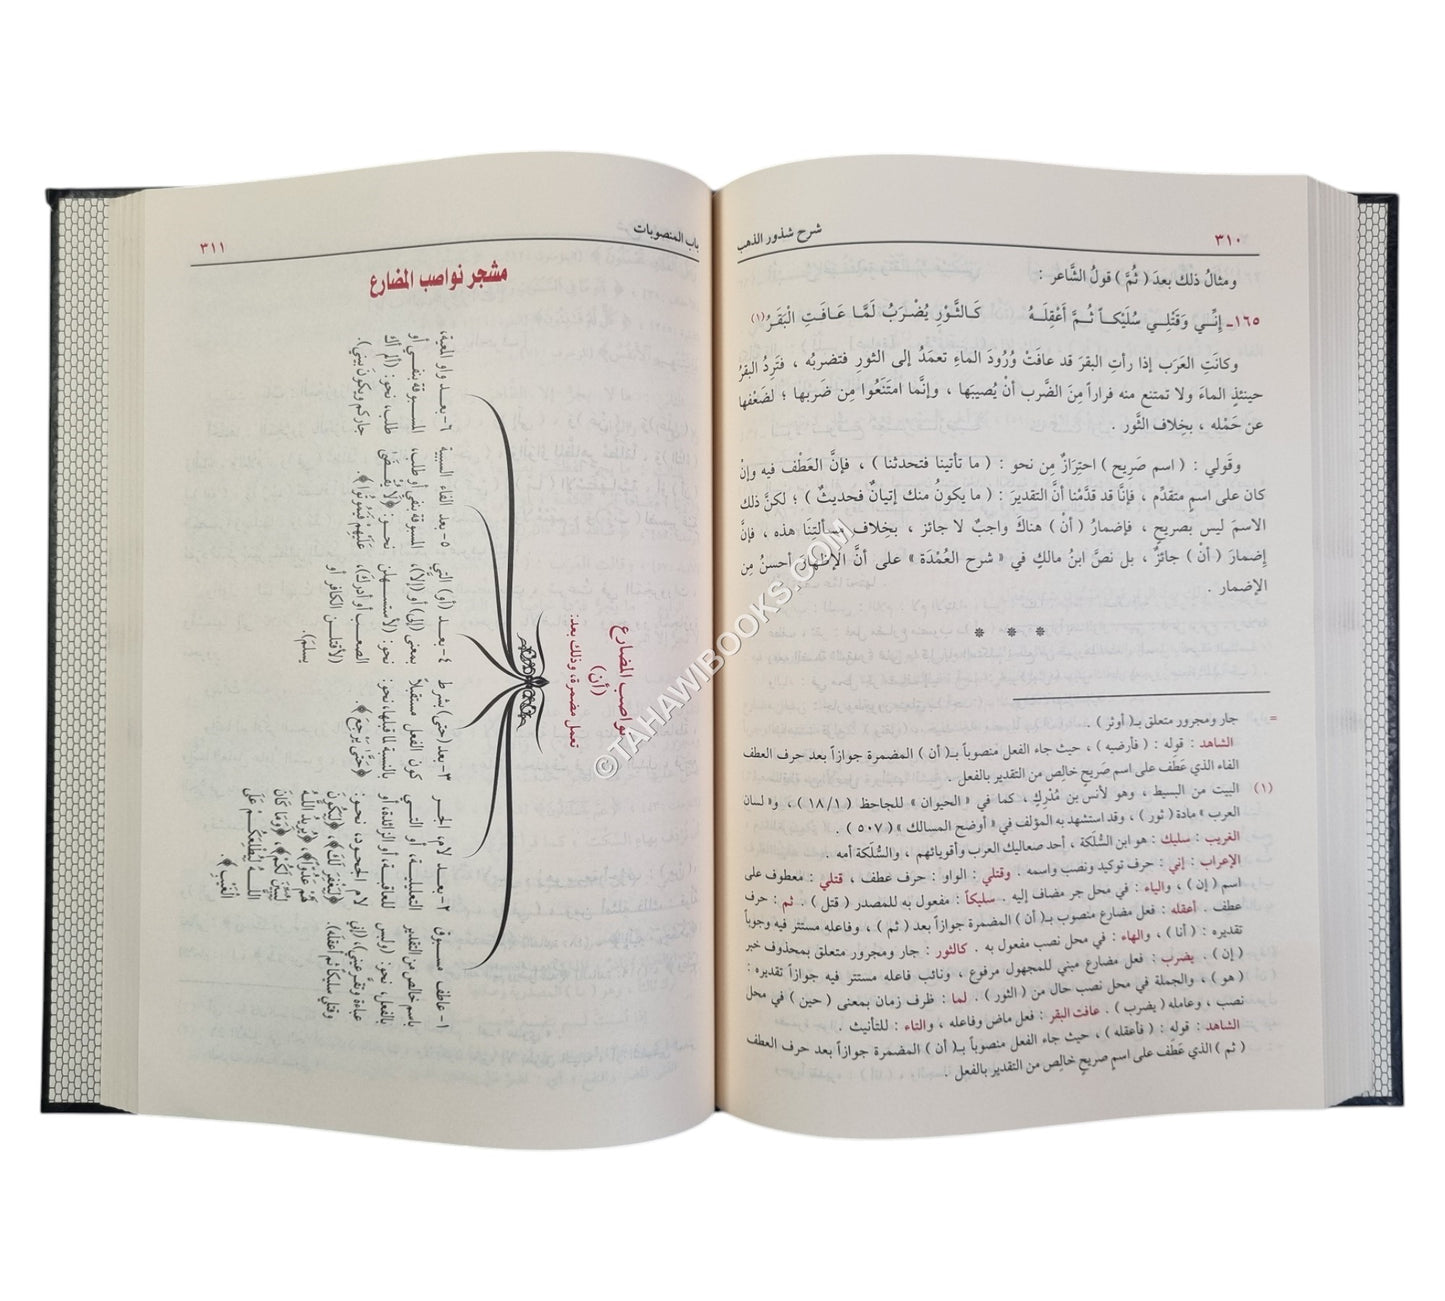 ٣١٠
شرح شذور الذهب
ومثالُ ذلك بعدَ ( ثُمَّ ) قولُ الشَّاعر :
١٦٥ـ إِنِّي وَقَتْلِي سُلَيْكاً ثُمَّ أَعْقِلَهُ كَالثَّوْرِ يُضْرَبُ لَمَّا عَافَتِ الْبَقَرُ(١)
وكانَتِ العَرَب إذا رأتِ البقرَ قد عافَتْ وُرُودَ الماءِ تعمَدُ إلى الثورِ فتضربُه ، فتَرِدُ البقرُ
حينئذٍ الماءَ ولا تمتنع منه فراراً مِنَ الضَّرب أنْ يُصيبَها ، وإنَّما امتَنَعُوا مِن ضَربها ؛ لضَعْفها
عن حَمْله ، بخِلاف الثَّور .
وقَولي : ( اسم صَرِيح ) احتِرَازٌ مِن نحو : ( ما تأتينا فتحدثنا ) ، فإنَّ العَطْف فيه وإنْ
كان على اسم متقدِّم ، فإنَّا قد قدَّمْنا أنَّ التقديرَ : ( ما يكونُ منك إتيانٌ فحديثٌ ) ؛ لكنَّ ذلك
الاسمَ ليس بصريحٍ ، فإضمارُ ( أنْ ) هناكَ واجبٌ لا جائز ، بخِلاف مسألتنَا هذه ، فإنَّ
إضمارَ ( أنْ ) جائزٌ ، بل نصَّ ابنُ مالكٍ في « شرح العُمْدَة » على أنَّ الإظهارَ أحسنُ مِن
الإضمار .
* * *
= جار ومجرور متعلق بـ( أوثر ) .
الشاهد : قوله : ( فأرضيه ) ، حيث جاء الفعل منصوباً بـ( أن ) المضمرة جوازاً بعد حرف العطف
الفاء الذي عَطَف على اسم صَريح خالِص من التقدير بالفعل .
(١) البيت من البسيط ، وهو لأنس بن مُدْرِك ، كما في « الحيوان » للجاحظ ( ١٨/١ ) ، و« لسان
العرب » مادة ( ثور ) ، وقد استشهد به المؤلف في « أوضح المسالك » ( ٥٠٧ ) .
الغريب : سليك : هو ابن السُّلَكة ، أحد صعاليك العرب وأقويائهم ، والسُّلَكة أمه .
الإعراب : إني : حرف توكيد ونصب واسمه . وقتلي : الواو : حرف عطف ، قتلي : معطوف على
اسم ( إن ) ، والياء : في محل جر مضاف إليه . سليكاً : مفعول به للمصدر ( قتل ) . ثم : حرف
عطف . أعقله : فعل مضارع منصوب بـ( أن ) المضمرة جوازاً بعد ( ثم ) ، وفاعله مستتر فيه وجوباً
تقديره : ( أنا ) ، والهاء : في محل نصب مفعول به . كالثور : جار ومجرور متعلق بمحذوف خبر
( إن ) . يضرب : فعل مضارع مبني للمجهول مرفوع ، ونائب فاعله مستتر فيه جوازاً تقديره :
( هو ) ، والجملة في محل نصب حال من ( الثور ) . لما : ظرف زمان بمعنى ( حين ) في محل
نصب ، وعامله ( يضرب ) . عافت البقر : فعل ماض وفاعله ، والتاء : للتأنيث .
الشاهد : قوله : ( فأعقله ) ، حيث جاء الفعل منصوباً بـ( أن ) المضمرة جوازاً بعد حرف العطف
( ثم ) الذي عَطَف على اسمٍ صريحٍ خالِص من التقدير بالفعل .
باب المنصوبات
٣١١
مشجر نواصب المضارع
نواصب المضارع
(أن)
تعمل مضمرة، وذلك بعد:
١- عاطف مسبوق
باسم خالص من التقدير
بالفعل، نحو: (ولبس
عباءة وتقرَّ عيني)، (إني
وقتلي سليكاً ثم أعقلَه).
٢- بعد لام الجر
التعليلية، أو التي
للعاقبة، أو الزائدة، أو
لام الجحود، نحو:
﴿لِيَغْفِرَ لَكَ﴾ ﴿لِيَكُونَ
لَهُمْ عَدُوًّا﴾، ﴿يُرِيدُ اللَّهُ
لِيُبَيِّنَ لَكُمْ﴾، ﴿وَمَا كَانَ
اللَّهُ لِيُطْلِعَكُمْ عَلَى
الْغَيْبِ﴾.
٣- بعد (حتى) بشرط
كون الفعل مستقبلاً
بالنسبة لما قبلها، نحو:
﴿حَتَّى يَرْجِعَ﴾.
٤- بعد (أو) التي
بمعنى (إلى) أو (إلا)،
نحو: (لأستسهلن
الصعب أو أدركَ)،
(لأقتلن الكافر أو
يسلمَ).
٥- بعد الفاء السببية
المسبوقة بنفي أو طلب،
نحو: ﴿لَا يُقْضَى
عَلَيْهِمْ فَيَمُوتُوا﴾.
٦- بعد واو المعية،
المسبوقة بنفي أو
طلب، نحو: (ألم أك
جاركم ويكونَ بيني).
© TAHAWIBOOKS.COM